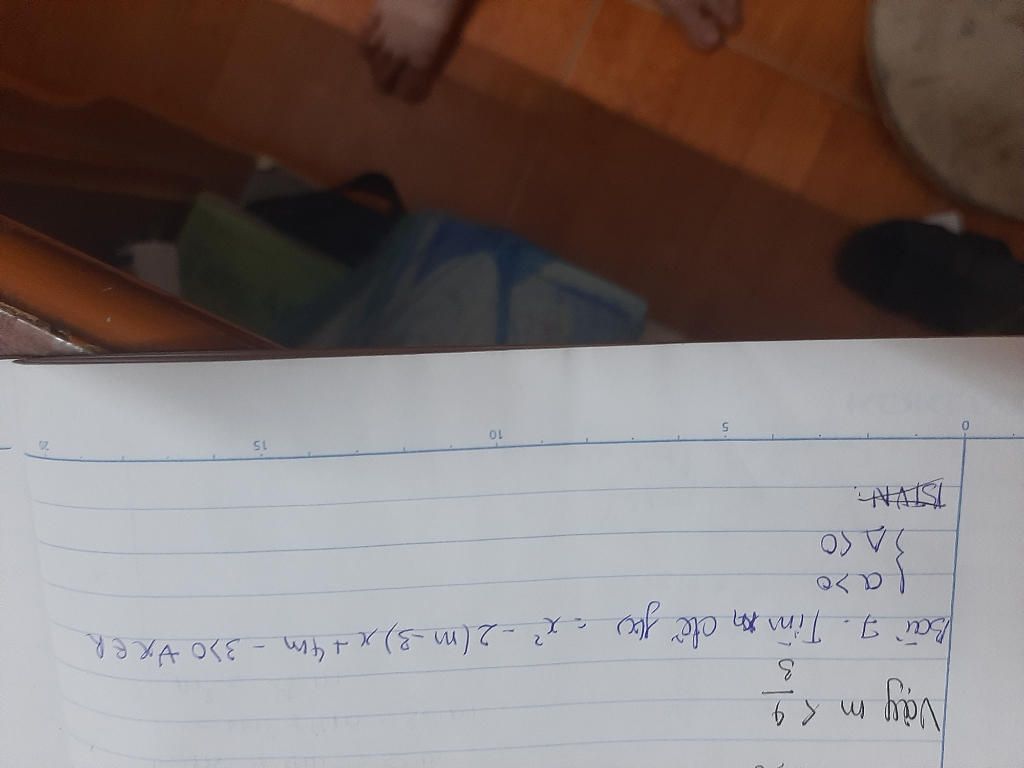 Vậy m < 4/3
Bài 7. Tìm m để f(x) = x² - 2(m-3)x + 4m - 3 > 0 ∀x∈R
{ a>0
Δ<0
BTVN:
0 5 10 15 20